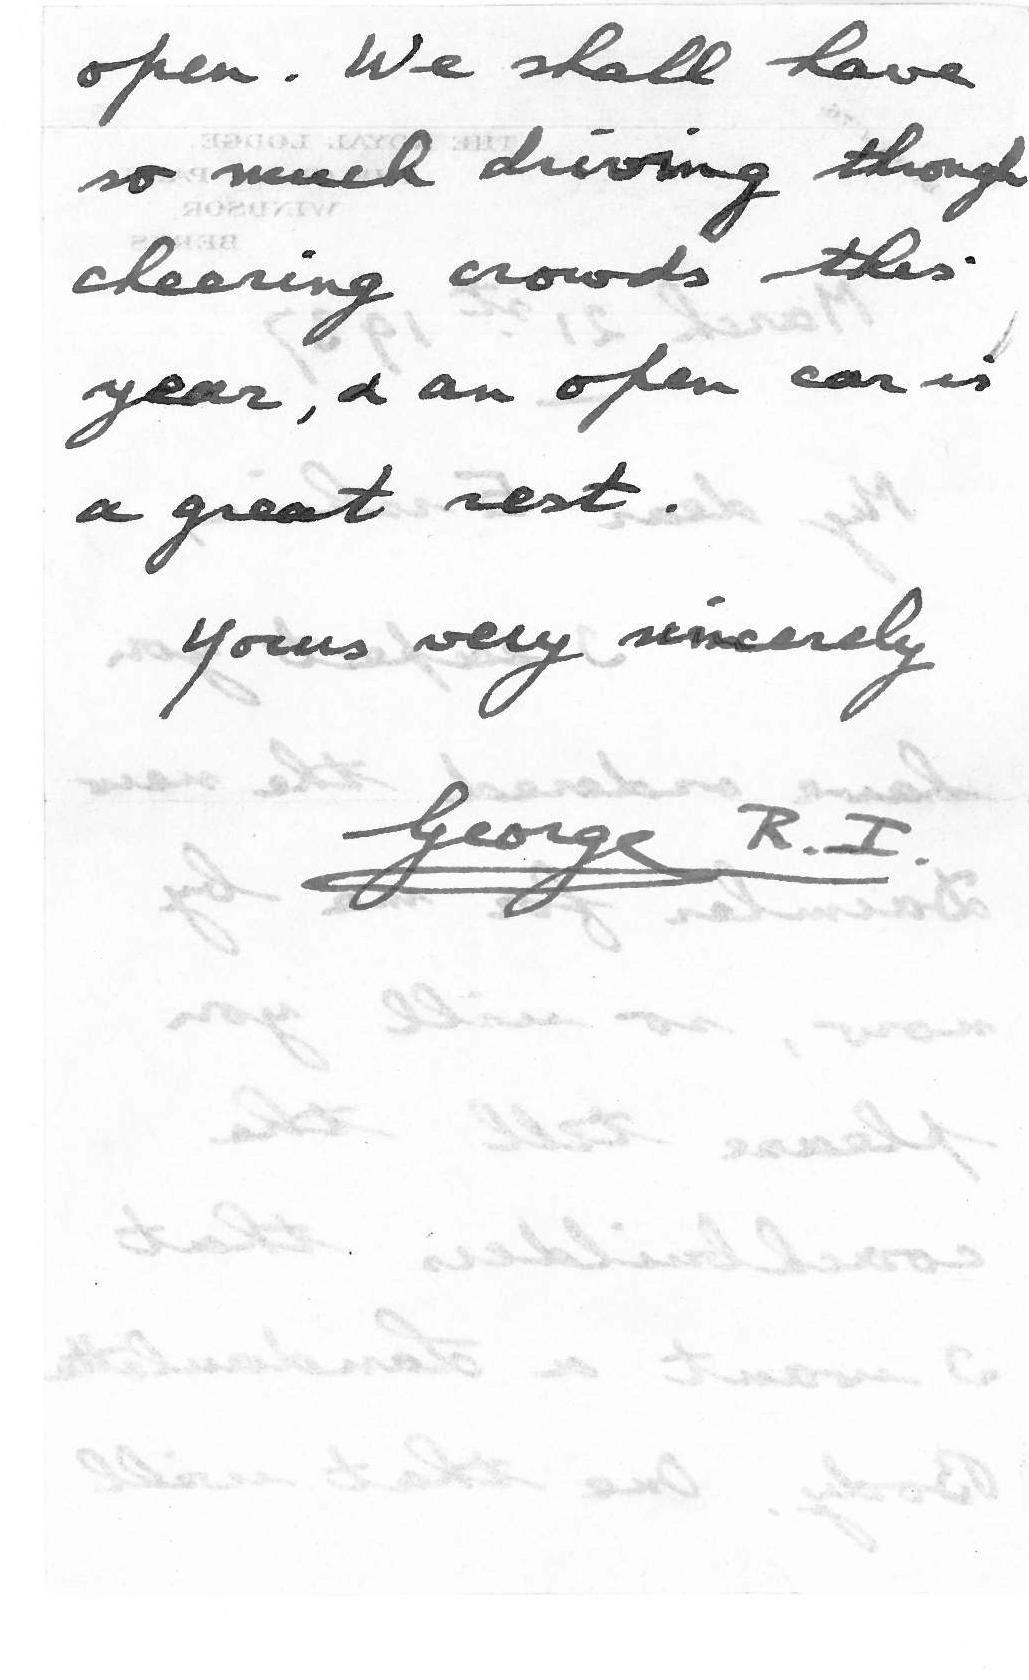 open. We shall have
so much driving through
cheering crowds this
year, & an open car is
a great rest.
Yours very sincerely
George R.I.